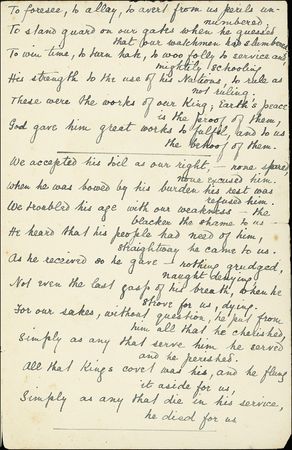 To foresee, to allay, to avert from us perils un-
numbered
To stand guard on our gates when he guessed
that our watchmen had slumbered
To win time, to turn hate, to woo folly to service and,
mightily schooling
His strength to the use of his Nations, to rule as
not ruling.
These were the works of our King; Earth's peace
is the proof of them;
God gave him great works to fulfil, and to us
the behoof of them.
We accepted his toil as our right, — none spared,
none excused him.
When he was bowed by his burden his rest was
refused him.
We troubled his age with our weakness — the
blacker the shame to us —
He heard that his people had need of him,
straightway he came to us.
As he received so he gave — nothing grudged,
naught denying;
Not even the last gasp of his breath, when he
strove for us, dying.
For our sakes, without question, he put from
him all that he cherished,
Simply as any that serve him he served
and he perished.
All that Kings covet was his, and he flung
it aside for us,
Simply as any that die in his service,
he died for us